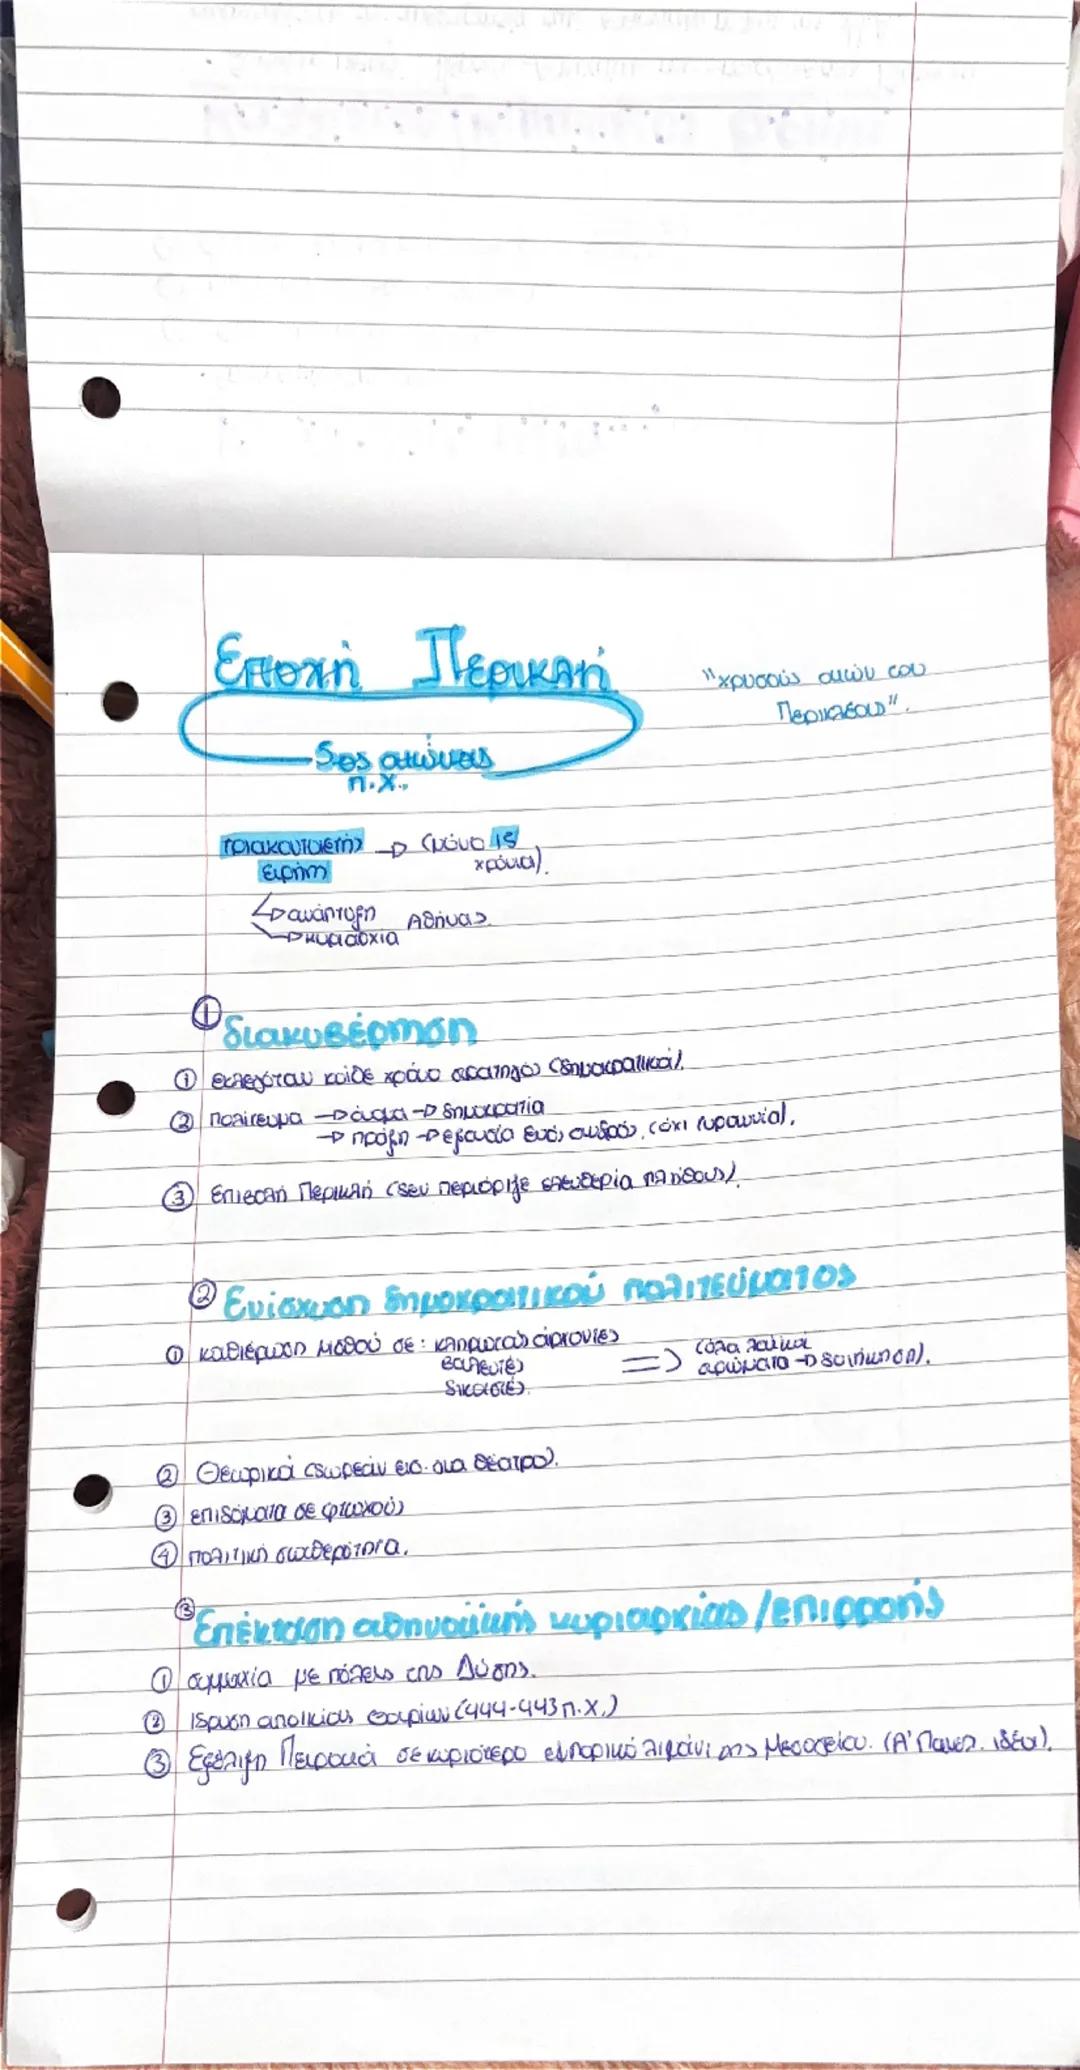 Εποχή Περικλή
"χρυσούς αιών του
Περικλέους".
5ος αιώνας
π.Χ.
τριακοντοετής → (μόνο 15
ειρήνη
χρόνια).
→ ανάπτυξη Αθήνας
→ κυριαρχία
① διακυβέρνηση
① εκλεγόταν κάθε χρόνο στρατηγός (δημοκρατικά).
② Πολίτευμα → όνομα → δημοκρατία
→ πράξη → εξουσία ενός ανδρός. (όχι τυραννία).
③ Επιβολή Περικλή (δεν περιόριζε ελευθερία πλήθους).
② Ενίσχυση δημοκρατικού πολιτεύματος
① καθιέρωση μισθού σε: κληρωτούς άρχοντες
βουλευτές
δικαστές.
=> (όλα λαϊκά
στρώματα → διοίκηση).
② Θεωρικά (δωρεάν εισ. στα θέατρο).
③ επιδόματα σε φτωχούς
④ πολιτική σταθερότητα.
③ Επέκταση αθηναϊκής κυριαρχίας/επιρροής
① συμμαχία με πόλεις της Δύσης.
② Ίδρυση αποικίας Θουρίων (444-443 π.Χ.)
③ Εξέλιξη Πειραιά σε κυριότερο εμπορικό λιμάνι της Μεσογείου. (Α' Πανελ. ιδέα).